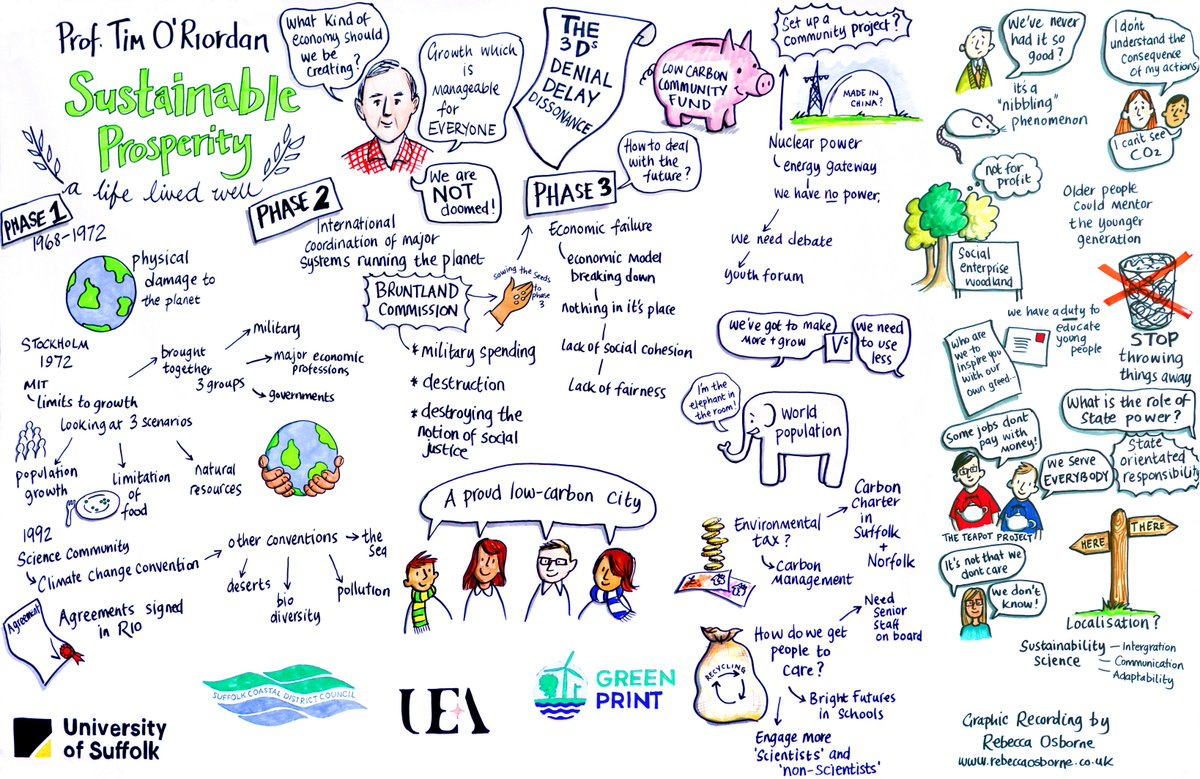 Prof. Tim O'Riordan
Sustainable
Prosperity
a life lived well
What kind of
economy should
we be
creating?
Growth which
is
manageable
for
EVERYONE
We are
NOT
doomed!
THE
3Ds
DENIAL
DELAY
DISSONANCE
LOW CARBON
COMMUNITY
FUND
Set up a
community project?
MADE IN
CHINA?
Nuclear power
energy gateway
we have no power,
we need debate
youth forum
We've never
had it so
good?
it's a
"nibbling"
phenomenon
I don't
understand the
consequence
of my actions
I can't see
CO2
PHASE 1
1968-1972
physical
damage to
the planet
STOCKHOLM
1972
MIT
limits to growth
Looking at 3 scenarios
population
growth
limitation
of
food
natural
resources
brought
together
3 groups
military
major economic
professions
governments
1992
Science Community
Climate change convention
other conventions
the
Sea
deserts
bio
diversity
pollution
Agreement
Agreements signed
in RIO
PHASE 2
International
coordination of major
systems running the planet
BRUNTLAND
COMMISSION
sowing the seeds
to
phase
3
* military spending
* destruction
* destroying the
notion of social
justice
PHASE 3
How to deal
with the
future?
Economic failure
economic model
breaking down
nothing in it's place
Lack of social cohesion
Lack of fairness
We've got to make
more + grow
Vs
We need
to use
less
I'm the
elephant in
the room!
world
population
A proud low-carbon city
Environmental
tax?
Carbon
Management
Carbon
Charter
in
Suffolk
+
Norfolk
How do we get
people to
care?
Need
Senior
staff
on board
Bright Futures
in Schools
Engage more
'scientists' and
'non-scientists'
RECYCLING
not for
profit
Social
enterprise
woodland
Older people
could mentor
the younger
generation
we have a duty to
educate
young
people
Who are
we to
inspire you
with our
own greed...
STOP
throwing
things away
What is the role of
State power?
State
orientated
responsibili
Some jobs dont
pay with
money!
We serve
EVERYBODY
THE TEAPOT PROJECT
It's not that we
dont care
We don't
know!
HERE
THERE
Localisation?
Sustainability
Science
Intergration
Communication
Adaptability
University
of Suffolk
SUFFOLK COASTAL DISTRICT COUNCIL
UEA
GREEN
PRINT
Graphic Recording by
Rebecca Osborne
www.rebeccaosborne.co.uk